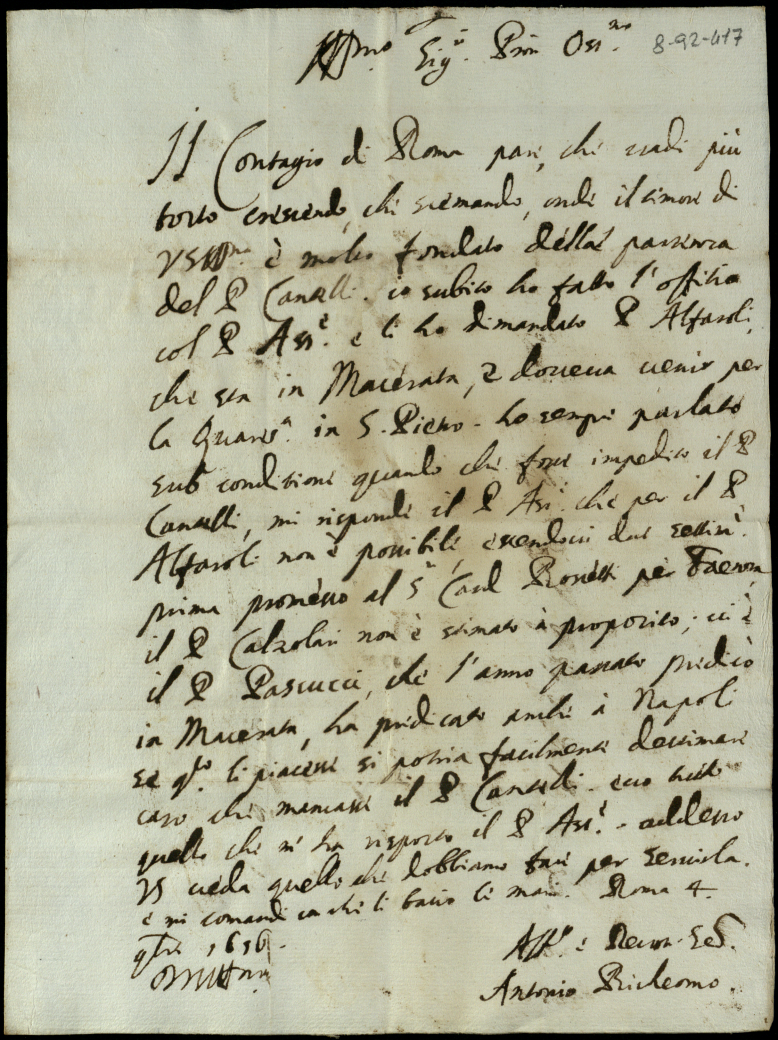 Ill.mo Sig.r Pron Oss.mo 8-92-417
Il Contagio di Roma pare, che vadi più
tosto crescendo, che scemando, onde il timore di
VSIll.ma è molto fondato della partenza
del P Cancelli. io subito ho fatto l'offitio
col P Ass.e e li ho dimandato P Alfaroli,
che sta in Macerata, e doveva venir per
la Quares.a in S. Pietro. ho sempre parlato
sub conditione quando che fosse impedito il P
Cancelli, mi risponde il P Ass.e che per il P
Alfaroli non è possibile, essendosi due settim.e
prima promesso al S.r Card Rossetti per Faenza
il P Calzolari non è stimato à proposito; vi è
il P Pascucci, che l'anno passato predicò
in Macerata, ha predicato anche à Napoli
se q.to li piacesse si potria facilmente destinare
caso che mancasse il P Cancelli. ecco tutto
quello che m' ha risposto il P Ass.e. adesso
VS veda quello che dobbiamo fare per servirla.
e mi comandi che li bacio le mani. Roma 4.
9bre 1656.
Aff.o e Devot. Se.
Antonio